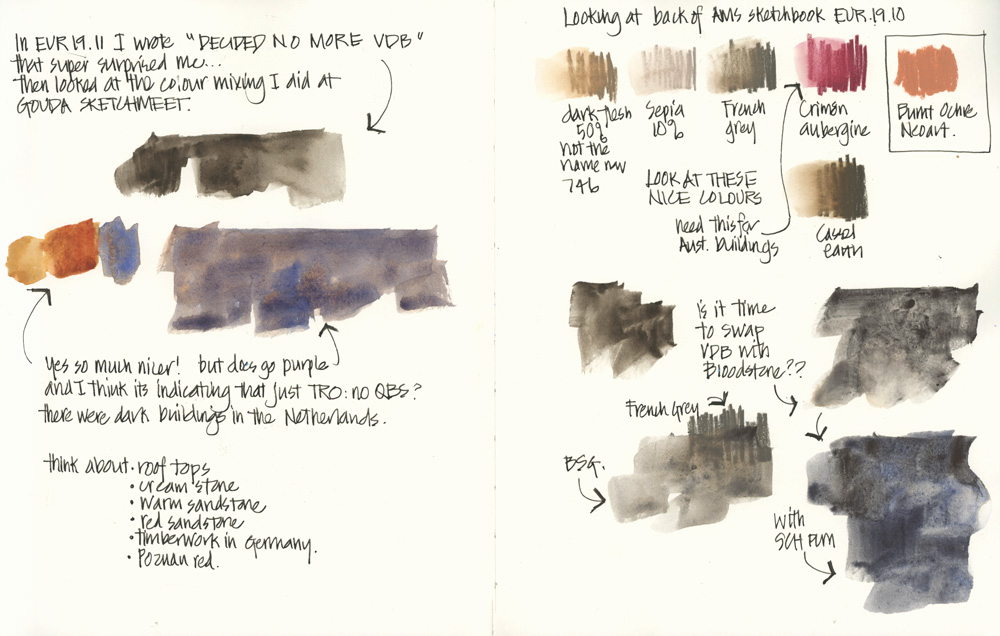 In EUR19.11 I wrote "DECIDED NO MORE VDB"
that super surprised me...
then looked at the colour mixing I did at
GOUDA SKETCHMEET.
Yes so much nicer! but does go purple
and I think its indicating that just TRO: no QBS?
there were dark buildings in the Netherlands.
think about • roof tops
• cream stone
• warm sandstone
• red sandstone
• timberwork in Germany.
• Poznan red.
Looking at back of AMS sketchbook EUR.19.10
dark flesh
50%
not the
name nw
746
Sepia
10%
French
grey
Crimson
aubergine
Burnt Ochre
Neoart.
LOOK AT THESE
NICE COLOURS
need this for
Aust. buildings
Cassel
earth
is it time
to swap
VDB with
Bloodstone??
French Grey
BSG.
with
SCH PUM